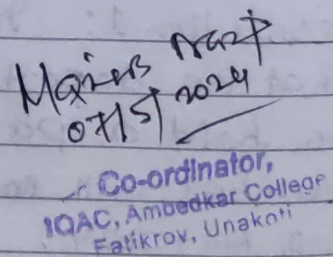 07/5/2024
Co-ordinator,
IQAC, Ambedkar College
Fatikroy, Unakoti